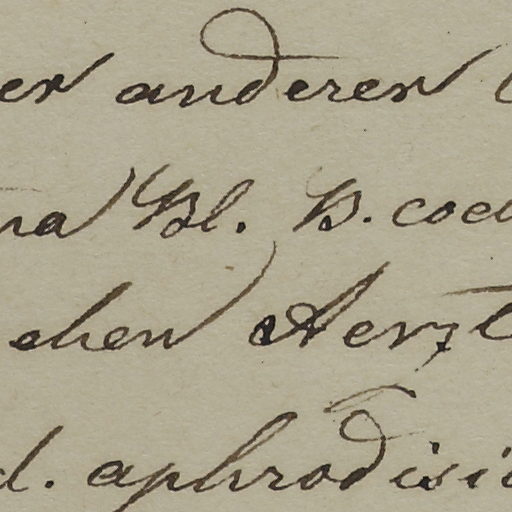 er anderer
na Bl. B. cod
chen Aerzt
d. aphrodisi